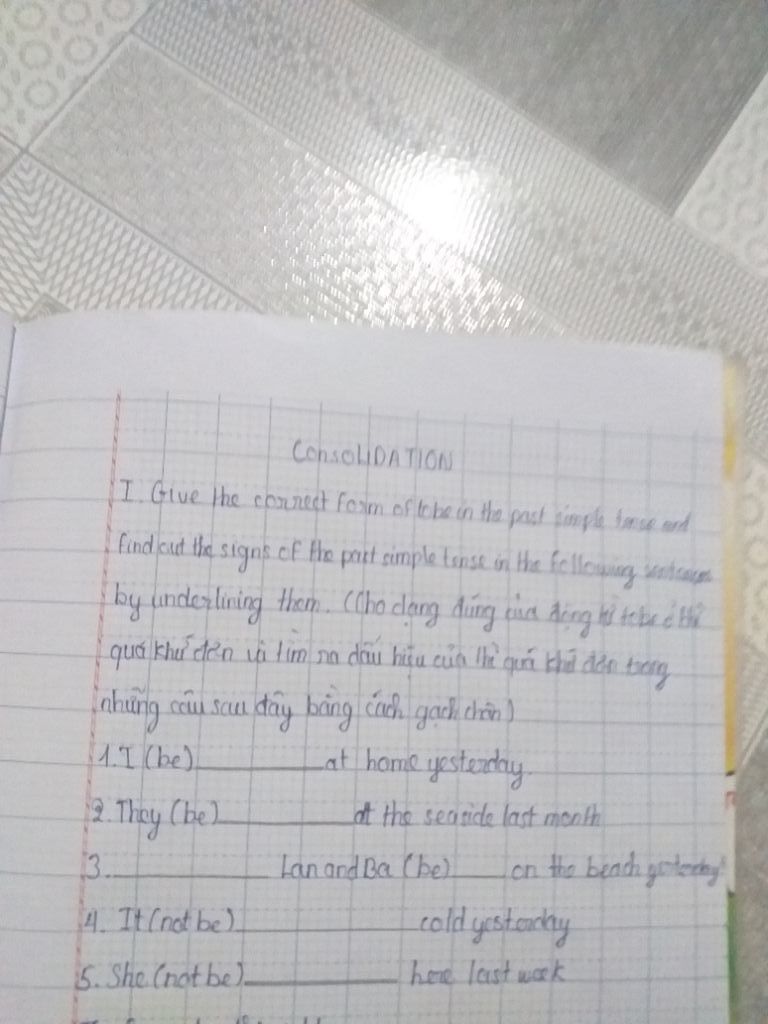 CONSOLIDATION
I. Give the correct form of tobe in the past simple tense and
find out the signs of the past simple tense in the following sentences
by underlining them. (Cho dạng đúng của động từ tobe ở thì
quá khứ đơn và tìm ra dấu hiệu của thì quá khứ đơn trong
những câu sau đây bằng cách gạch chân)
1. I (be)__________at home yesterday.
2. They (be)__________at the seaside last month
3.____________ Lan and Ba (be)____ on the beach yesterday?
4. It (not be)______________cold yesterday
5. She (not be)____________ here last week